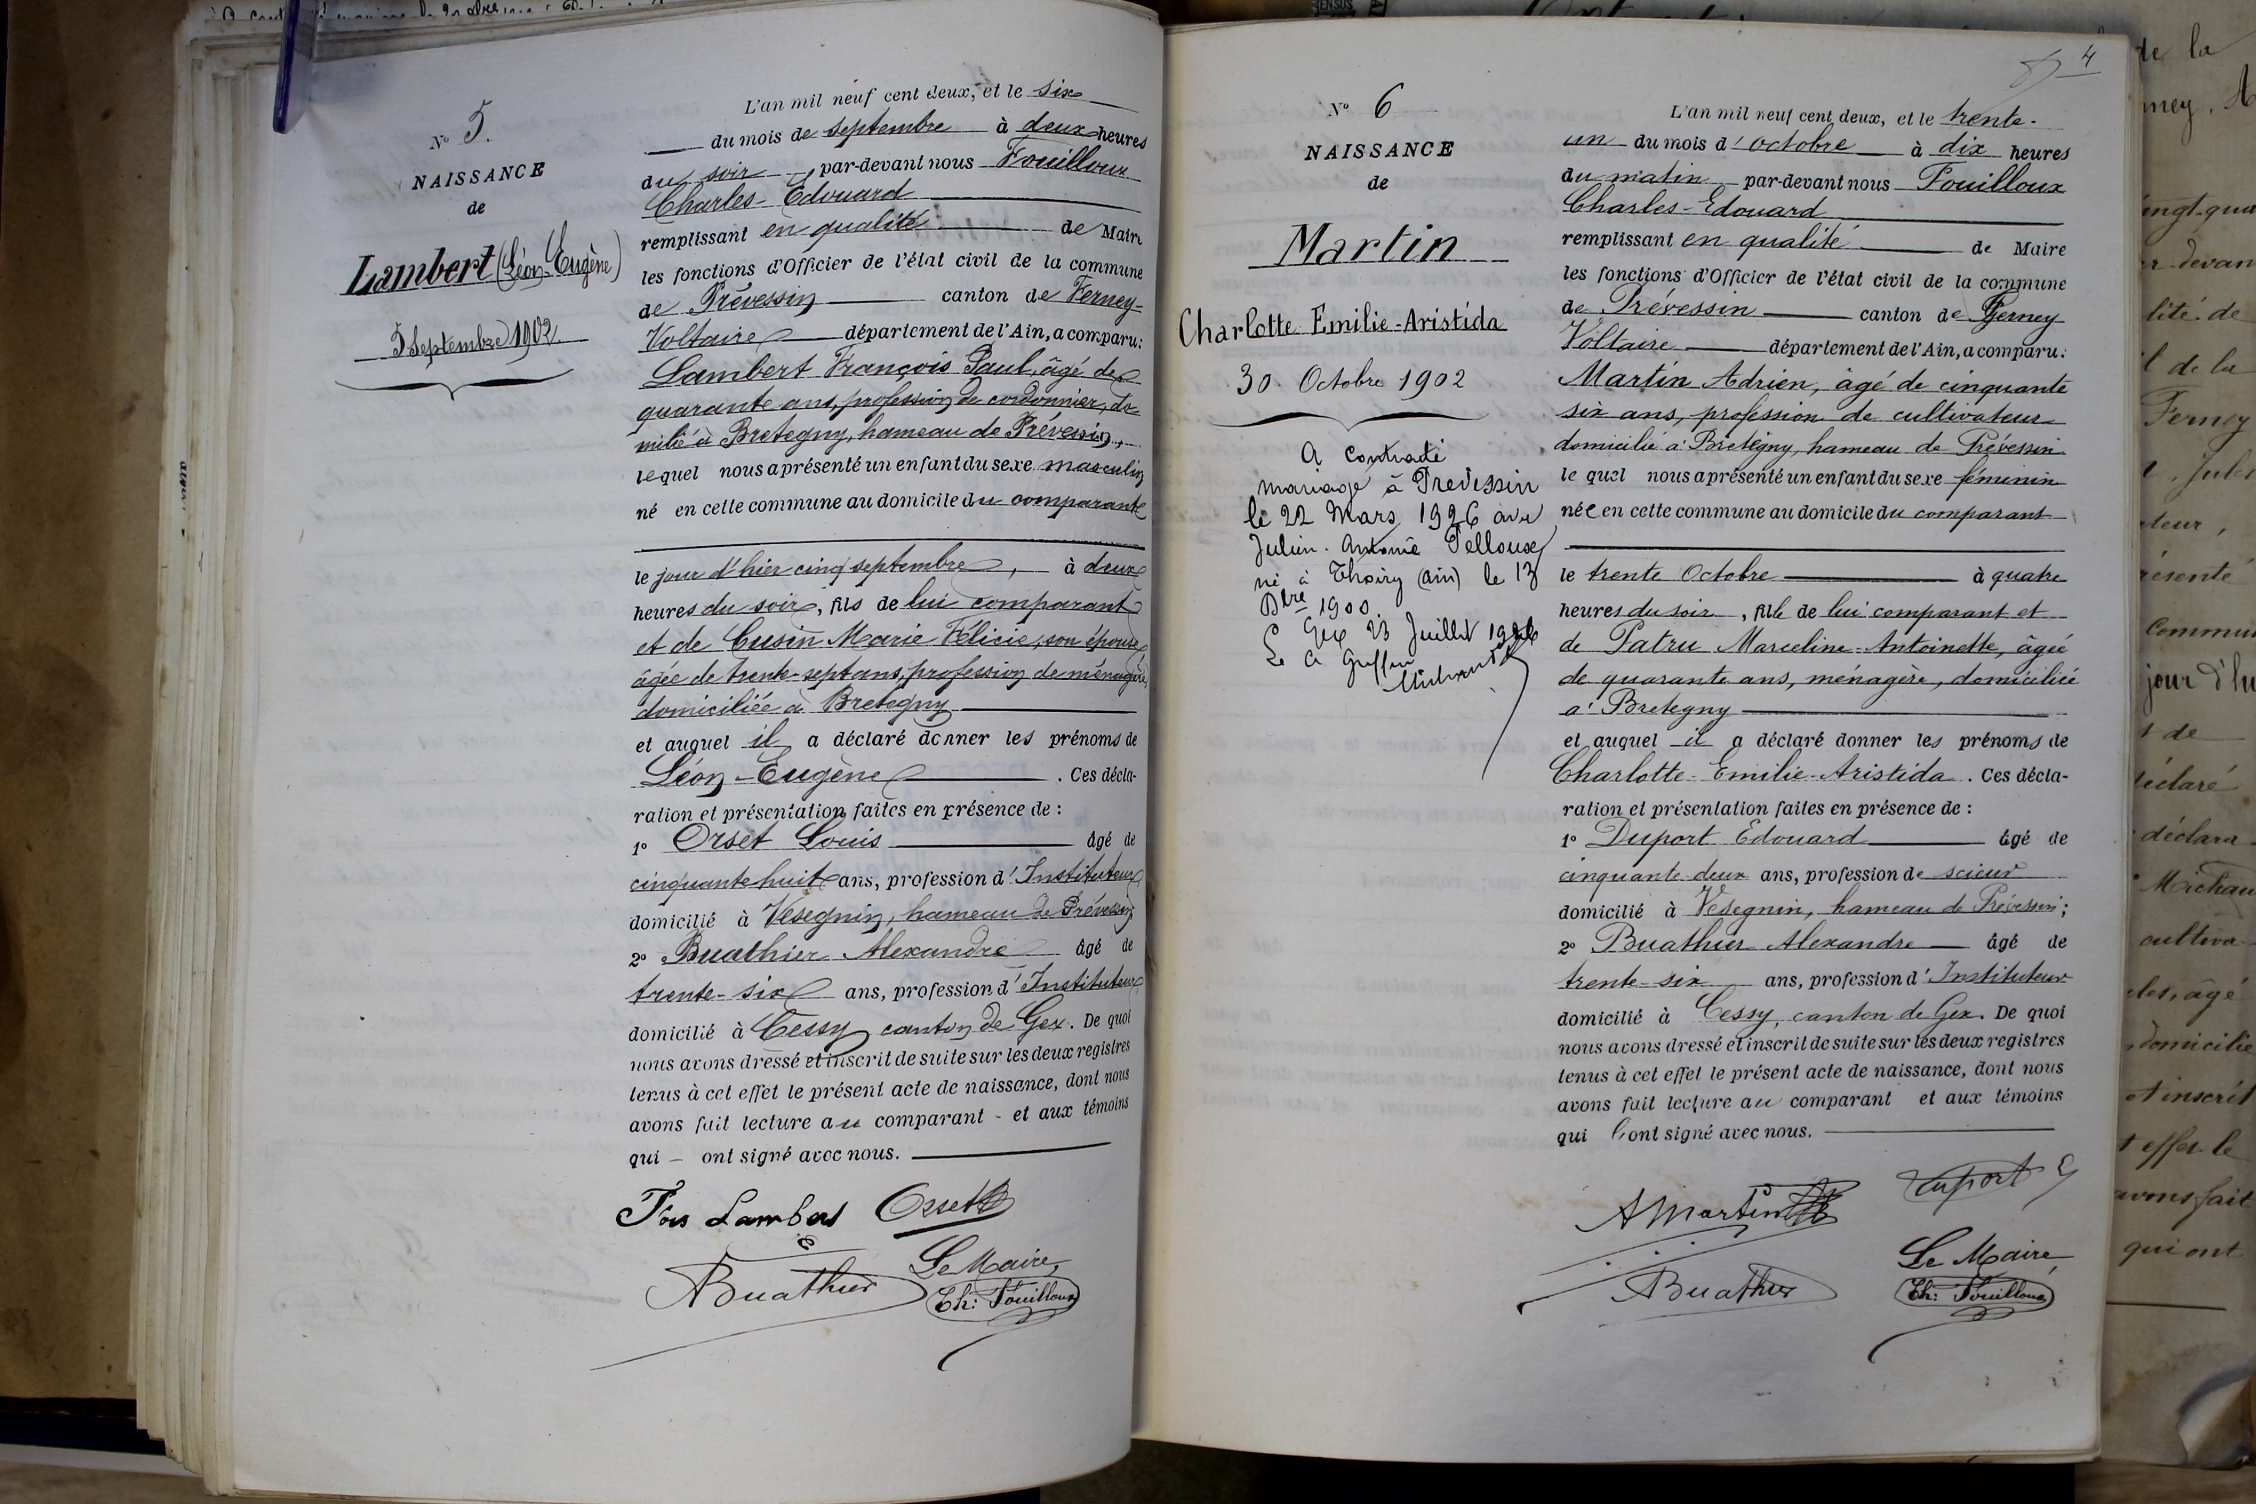 N° 5.
NAISSANCE
de
Lambert (Léon-Eugène)
5 Septembre 1902.
L'an mil neuf cent deux, et le six
du mois de septembre à deux heures
du soir par-devant nous Fouilloux
Charles-Édouard
remplissant en qualité de Maire
les fonctions d'Officier de l'état civil de la commune
de Prévessin canton de Ferney-
Voltaire département de l'Ain, a comparu:
Lambert François Paul, âgé de
quarante ans, profession de cordonnier, do-
milié à Bretegny, hameau de Prévessin,
lequel nous a présenté un enfant du sexe masculin
né en cette commune au domicile du comparant
le jour d'hier cinq septembre, à deux
heures du soir, fils de lui comparant
et de Cusin Marie Félicie, son épouse
âgée de trente-sept ans, profession de ménagère,
domiciliée à Bretegny
et auquel il a déclaré donner les prénoms de
Léon-Eugène. Ces décla-
ration et présentation faites en présence de :
1° Orset Louis âgé de
cinquante huit ans, profession d'Instituteur
domicilié à Vésegnin, hameau de Prévessin;
2° Buathier Alexandre âgé de
trente-six ans, profession d'Instituteur
domicilié à Cessy canton de Gex. De quoi
nous avons dressé et inscrit de suite sur les deux registres
tenus à cet effet le présent acte de naissance, dont nous
avons fait lecture au comparant - et aux témoins
qui - ont signé avec nous.
Fois Lambert Orset
ABuathier Le Maire,
Ch: Fouilloux
4
N° 6
NAISSANCE
de
Martin
Charlotte-Emilie-Aristida
30 Octobre 1902
A contracté
mariage à Prévessin
le 22 Mars 1926 avec
Julien-Antonie Pelloux
né à Thoiry (Ain) le 13
Dbre 1900.
Gex 23 Juillet 1926
Le Greffier
L'an mil neuf cent deux, et le trente-
un du mois d'octobre à dix heures
du matin par-devant nous Fouilloux
Charles-Edouard
remplissant en qualité de Maire
les fonctions d'Officier de l'état civil de la commune
de Prévessin canton de Ferney
Voltaire département de l'Ain, a comparu:
Martin Adrien, âgé de cinquante
six ans, profession de cultivateur
domicilié à Bretegny, hameau de Prévessin
le quel nous a présenté un enfant du sexe féminin
née en cette commune au domicile du comparant
le trente Octobre à quatre
heures du soir, fille de lui comparant et
de Patru Marceline-Antoinette, âgée
de quarante ans, ménagère, domiciliée
à Bretegny
et auquel il a déclaré donner les prénoms de
Charlotte-Emilie-Aristida. Ces décla-
ration et présentation faites en présence de :
1° Duport Edouard âgé de
cinquante-deux ans, profession de scieur
domicilié à Vésegnin, hameau de Prévessin;
2° Buathier Alexandre âgé de
trente-six ans, profession d'Instituteur
domicilié à Cessy, canton de Gex. De quoi
nous avons dressé et inscrit de suite sur les deux registres
tenus à cet effet le présent acte de naissance, dont nous
avons fait lecture au comparant et aux témoins
qui ont signé avec nous.
AMartin Duport
Le Maire,
ABuathier Ch: Fouilloux
de la
Ferney
commun
jour d'hu
de
déclaré
déclara
Michau
cultiva
âgé
domicilié
et inscrit
effet le
avons fait
qui ont